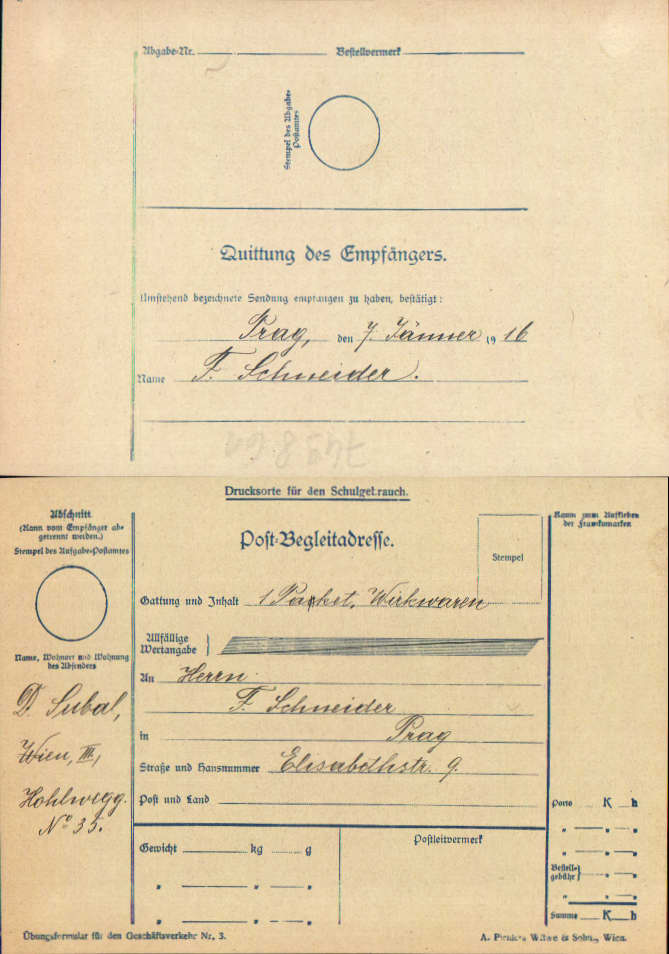 Abgabe-Nr. Bestellvermerk
Stempel des Abgabe-
Postamtes
Quittung des Empfängers.
Umstehend bezeichnete Sendung empfangen zu haben, bestätigt:
Prag, den 7. Jänner 1916
Name F. Schneider.
Drucksorte für den Schulgebrauch.
Abschnitt
(Kann vom Empfänger ab-
getrennt werden.)
Stempel des Aufgabe-Postamtes
Name, Wohnort und Wohnung
des Absenders
D. Subal,
Wien, III,
Hohlwegg.
No 35.
Post-Begleitadresse.
Stempel
Gattung und Inhalt 1 Packet, Wirkwaren
Allfällige
Wertangabe
An Herrn
F. Schneider
in Prag
Straße und Hausnummer Elisabethstr. 9.
Post und Land
Gewicht kg g
" " "
" " "
Postleitvermerk
Raum zum Aufkleben
der Frankomarken
Porto K h
" " "
" " "
Bestell-
gebühr " "
" " "
Summe K h
Übungsformular für den Geschäftsverkehr Nr. 3.
A. Pichlers Witwe & Sohn, Wien.